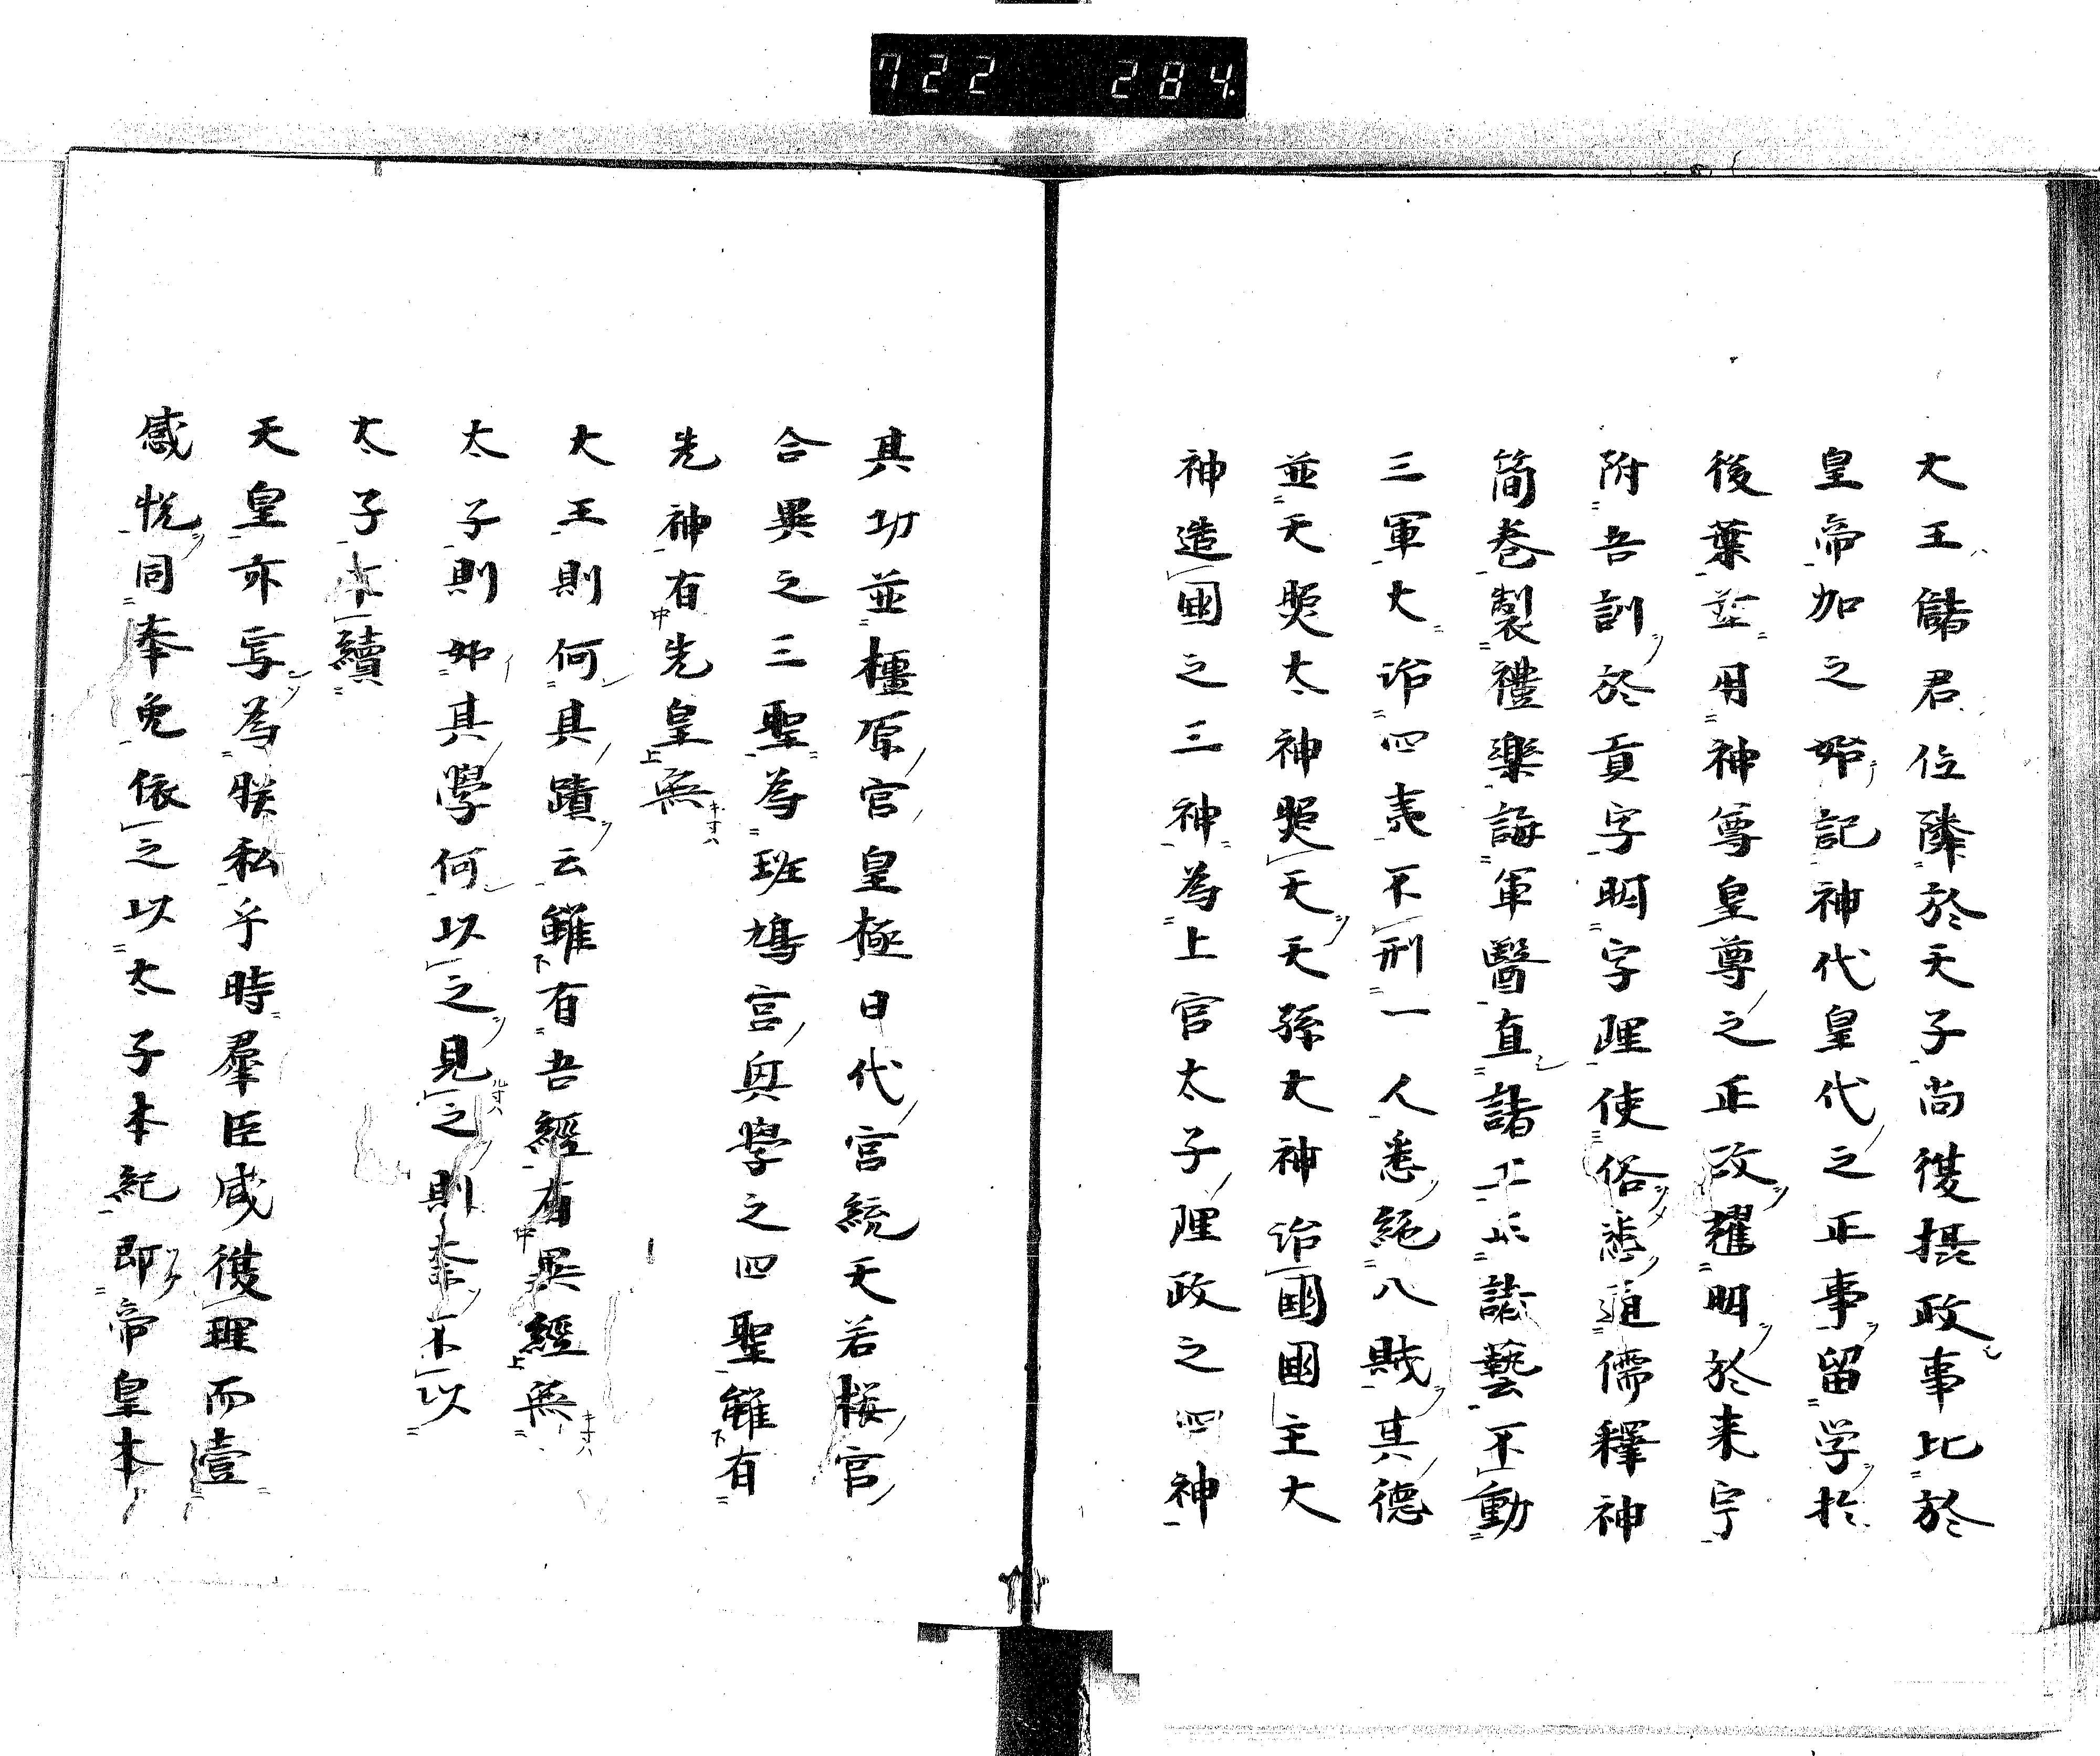 722 284
大王儲君位隣於天子尚復摂政事比於
皇帝加之姉記神代皇代之正事留学於
後葉並用神尊皇尊之正政耀明於来宇
附吾訓於貢字明字理使俗悉道儒釋神
簡巻製禮樂誨軍醫直諸工正諸藝不動
三軍大治四夷不刑一人悉絶八賊其德
並天照太神照天天孫大神治國國主大
神造國之三神為上宮太子理政之四神
其功並橿原宮皇極日代宮統天若桜宮
合異之三聖為班鳩宮與學之四聖雖有
先神有先皇無
大王則何其蹟云雖有吾經有異經無
太子則如其學何以之見之則奉不以
太子本續
天皇亦寫為朕私乎時羣臣咸復理而壹
感悦同奉免依之以太子本紀即帝皇本